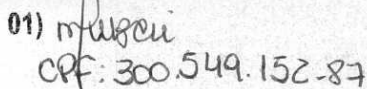 01)
CPF: 300.549.152-87